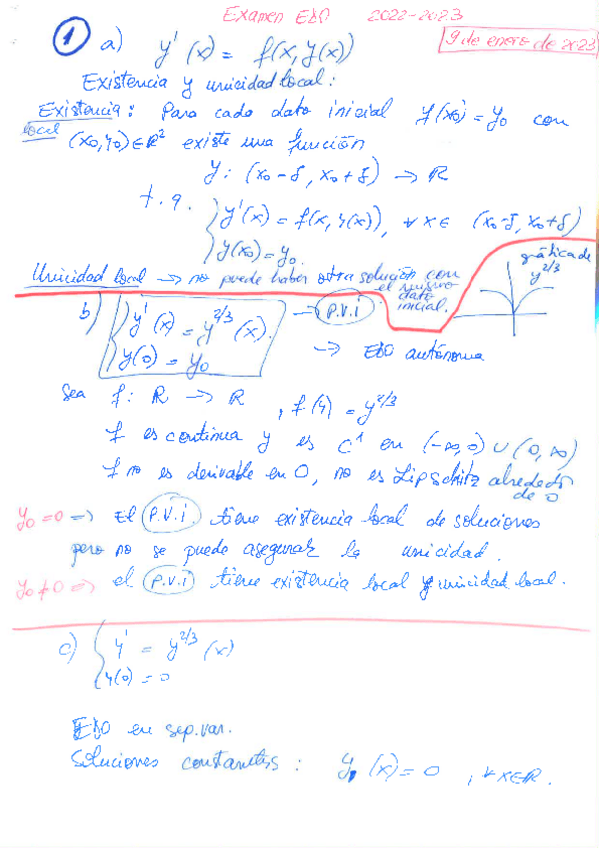 Examen EDO 2022-2023
9 de enero de 2023
1 a) y'(x) = f(x, y(x))
Existencia y unicidad local:
Existencia: Para cada dato inicial y(x0) = y0 con
local (x0, y0) ∈ R² existe una función
y: (x0-δ, x0+δ) → R
t.q. { y'(x) = f(x, y(x)), ∀ x ∈ (x0-δ, x0+δ)
y(x0) = y0.
Unicidad local → no puede haber otra solución con
el mismo
dato
inicial.
gráfica de
y^2/3
b) { y'(x) = y^2/3 (x).
y(0) = y0
→ P.V.i
→ EDO autónoma
Sea f: R → R , f(y) = y^2/3
f es continua y es C¹ en (-∞, 0) ∪ (0, ∞)
f no es derivable en 0, no es Lipschitz alrededor
de 0
y0 = 0 => El P.V.i. tiene existencia local de soluciones
pero no se puede asegurar la unicidad.
y0 ≠ 0 => el P.V.i tiene existencia local y unicidad local.
c) { y' = y^2/3 (x)
y(0) = 0
EDO en sep. var.
Soluciones constantes: y1(x) = 0 , ∀ x∈R.